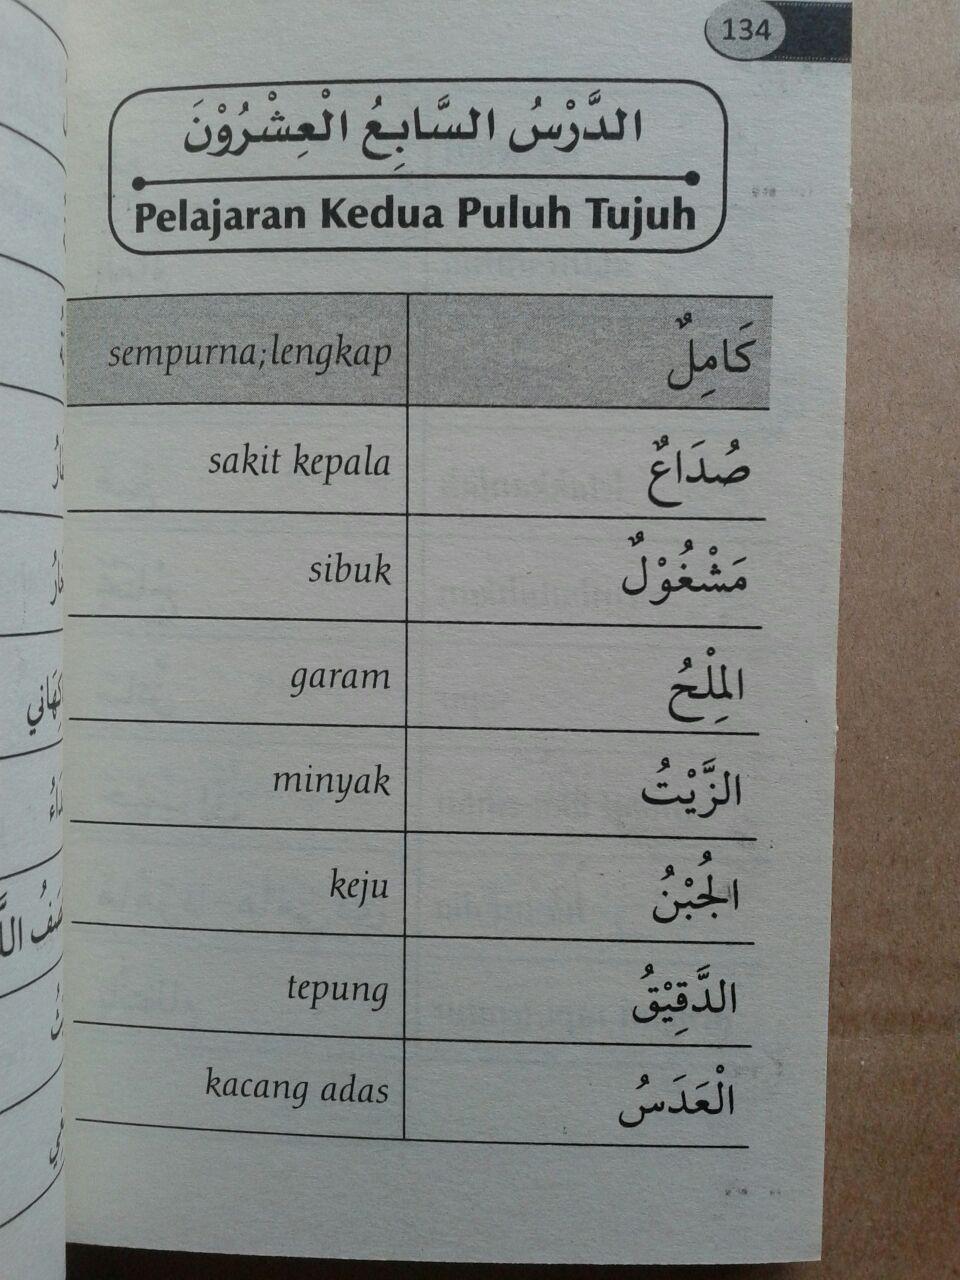 134
الدَّرْسُ السَّابِعُ الْعِشْرُوْنَ
Pelajaran Kedua Puluh Tujuh
كَامِلٌ sempurna;lengkap
صُدَاعٌ sakit kepala
مَشْغُوْلٌ sibuk
المِلْحُ garam
الزَّيْتُ minyak
الجُبْنُ keju
الدَّقِيْقُ tepung
الْعَدَسُ kacang adas